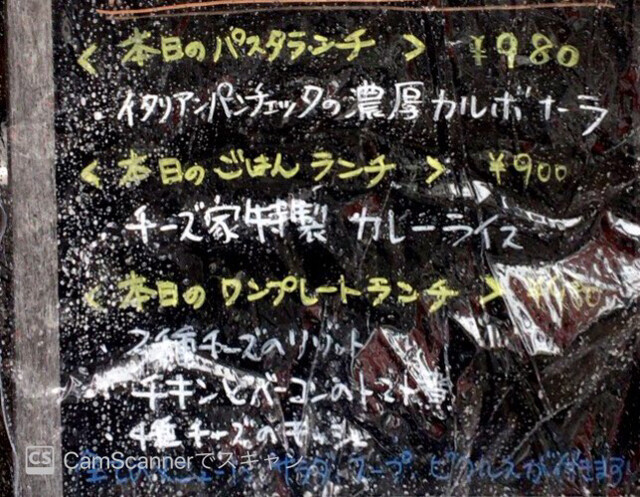 <本日のパスタランチ> ¥980
・イタリアンパンチェッタの濃厚カルボナーラ
<本日のごはんランチ> ¥900
・チーズ家特製 カレーライス
<本日のワンプレートランチ>
2種チーズのリゾット
チキンとベーコンのトマト煮
・4種チーズのキッシュ
全てのメニューに サラダ、スープ、ピクルスが付きます!
CS CamScannerでスキャン